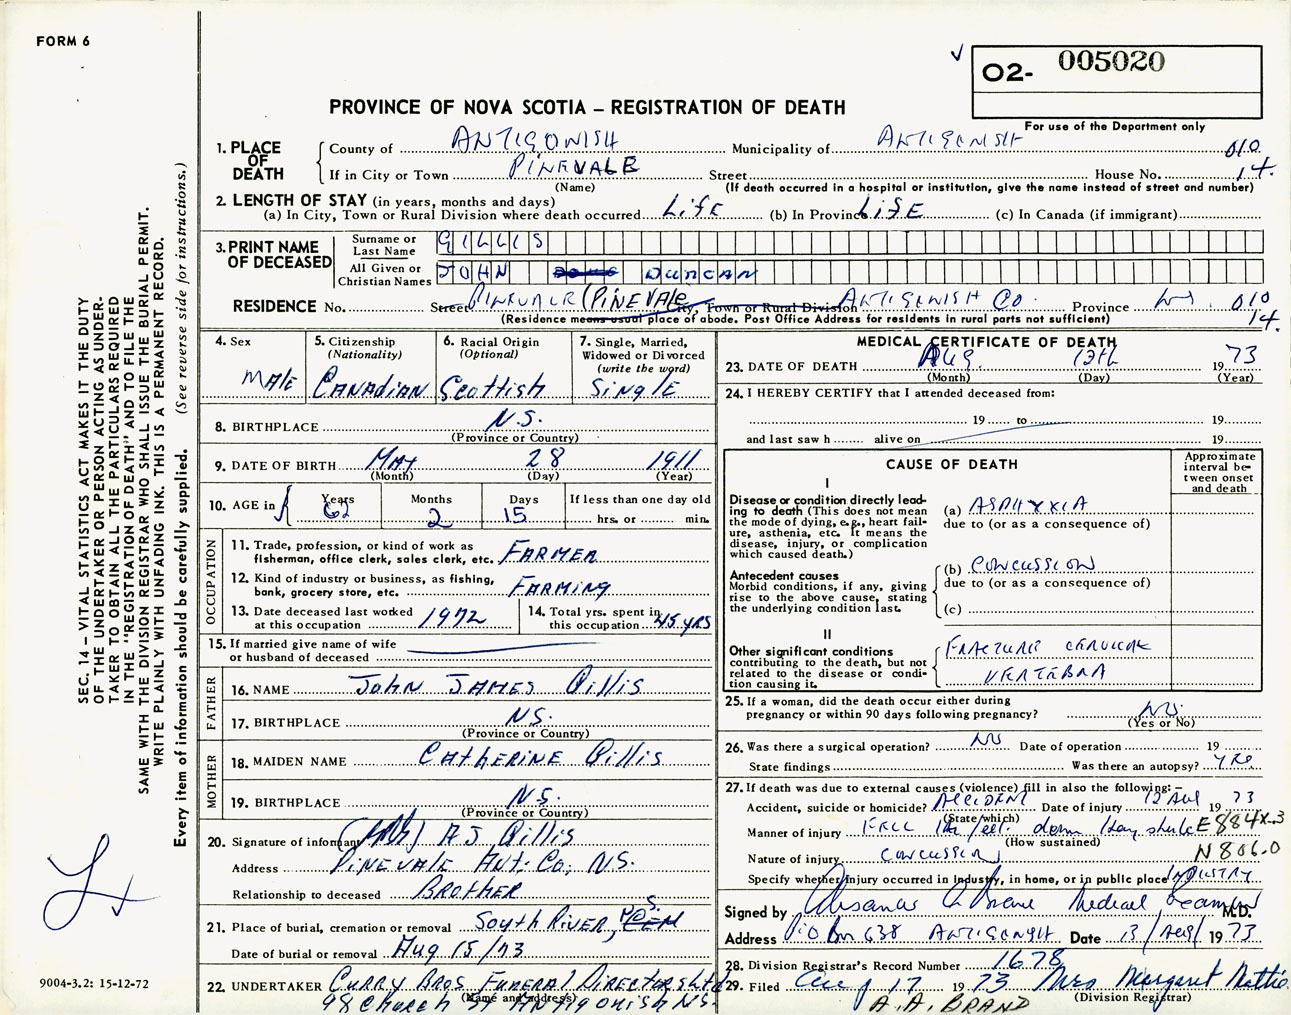 FORM 6
O2- 005020
PROVINCE OF NOVA SCOTIA – REGISTRATION OF DEATH
For use of the Department only
1. PLACE OF DEATH
County of ANTIGONISH Municipality of ANTIGONISH 010
If in City or Town PINEVALE Street House No. 14.
(Name) (If death occurred in a hospital or institution, give the name instead of street and number)
2. LENGTH OF STAY (in years, months and days)
(a) In City, Town or Rural Division where death occurred LIFE (b) In Province LIFE (c) In Canada (if immigrant)
3. PRINT NAME OF DECEASED
Surname or Last Name GILLIS
All Given or Christian Names JOHN DUNCAN
RESIDENCE No. Street PINEVALE (PINEVALE City, Town or Rural Division ANTIGONISH CO Province N.S. 010
(Residence means usual place of abode. Post Office Address for residents in rural parts not sufficient) 14.
4. Sex MALE
5. Citizenship (Nationality) CANADIAN
6. Racial Origin (Optional) Scottish
7. Single, Married, Widowed or Divorced (write the word) SINGLE
8. BIRTHPLACE N.S.
(Province or Country)
9. DATE OF BIRTH MAY 28 1911
(Month) (Day) (Year)
10. AGE in Years 62 Months 2 Days 15 If less than one day old hrs. or min.
OCCUPATION
11. Trade, profession, or kind of work as fisherman, office clerk, sales clerk, etc. FARMER
12. Kind of industry or business, as fishing, bank, grocery store, etc. FARMING
13. Date deceased last worked at this occupation 1972
14. Total yrs. spent in this occupation 45 YRS
15. If married give name of wife or husband of deceased
FATHER
16. NAME JOHN JAMES GILLIS
17. BIRTHPLACE N.S.
(Province or Country)
MOTHER
18. MAIDEN NAME CATHERINE GILLIS
19. BIRTHPLACE N.S.
(Province or Country)
20. Signature of informant A J Gillis
Address PINEVALE ANT. CO, N.S.
Relationship to deceased BROTHER
21. Place of burial, cremation or removal SOUTH RIVER, N.S. CEM
Date of burial or removal Aug 15/73
22. UNDERTAKER CURRY BROS FUNERAL DIRECTORS LTD
(Name and address) 98 CHURCH ST ANTIGONISH N.S.
MEDICAL CERTIFICATE OF DEATH
23. DATE OF DEATH AUG. 12th 19 73
(Month) (Day) (Year)
24. I HEREBY CERTIFY that I attended deceased from:
19 to 19
and last saw h alive on 19
CAUSE OF DEATH
Approximate interval between onset and death
I
Disease or condition directly leading to death (This does not mean the mode of dying, e.g., heart failure, asthenia, etc. It means the disease, injury, or complication which caused death.)
(a) ASPHYXIA
due to (or as a consequence of)
Antecedent causes
Morbid conditions, if any, giving rise to the above cause, stating the underlying condition last.
(b) CONCUSSION
due to (or as a consequence of)
(c)
II
Other significant conditions contributing to the death, but not related to the disease or condition causing it.
FRACTURE CERVICAL
VERTEBRA
25. If a woman, did the death occur either during pregnancy or within 90 days following pregnancy? NO
(Yes or No)
26. Was there a surgical operation? NO Date of operation 19
State findings Was there an autopsy? YES
27. If death was due to external causes (violence) fill in also the following:–
Accident, suicide or homicide? ACCIDENT Date of injury 12 AUG 19 73
(State which)
Manner of injury FELL feet down Hay shute E884X.3
(How sustained)
Nature of injury CONCUSSION N 806.0
Specify whether injury occurred in industry, in home, or in public place INDUSTRY
Signed by Medical Examiner M.D.
Address P.O Box 638 ANTIGONISH Date 13/Aug/ 19 73
28. Division Registrar's Record Number 1678
29. Filed Aug 17 19 73 Mrs Margaret Mattie
(Division Registrar)
A. A. BRAND
SEC. 14 – VITAL STATISTICS ACT MAKES IT THE DUTY
OF THE UNDERTAKER OR PERSON ACTING AS UNDER-
TAKER TO OBTAIN ALL THE PARTICULARS REQUIRED
IN THE "REGISTRATION OF DEATH" AND TO FILE THE
SAME WITH THE DIVISION REGISTRAR WHO SHALL ISSUE THE BURIAL PERMIT.
WRITE PLAINLY WITH UNFADING INK. THIS IS A PERMANENT RECORD.
Every item of information should be carefully supplied. (See reverse side for instructions.)
9004-3.2: 15-12-72